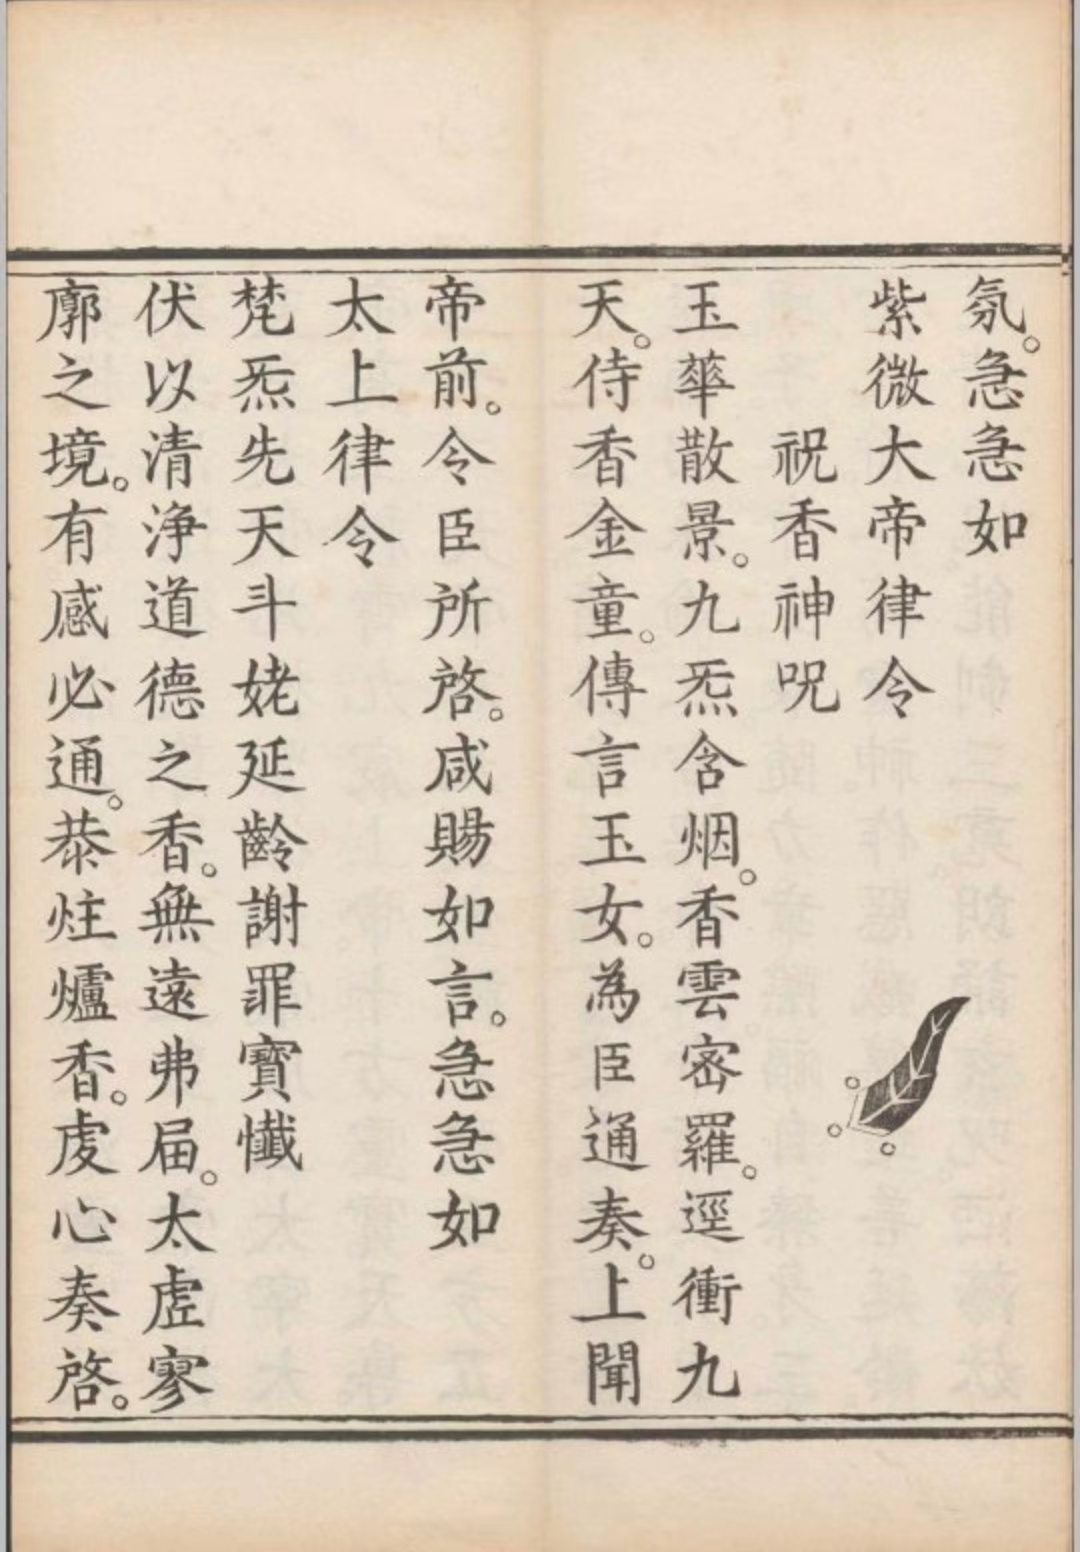 氛。急急如
紫微大帝律令
祝香神呪
玉華散景。九炁含烟。香雲密羅。逕衝九
天。侍香金童。傳言玉女。為臣通奏。上聞
帝前。令臣所啓。咸賜如言。急急如
太上律令
梵炁先天斗姥延齡謝罪寶懺
伏以清淨道德之香。無遠弗届。太虛寥
廓之境。有感必通。恭炷爐香。虔心奏啓。